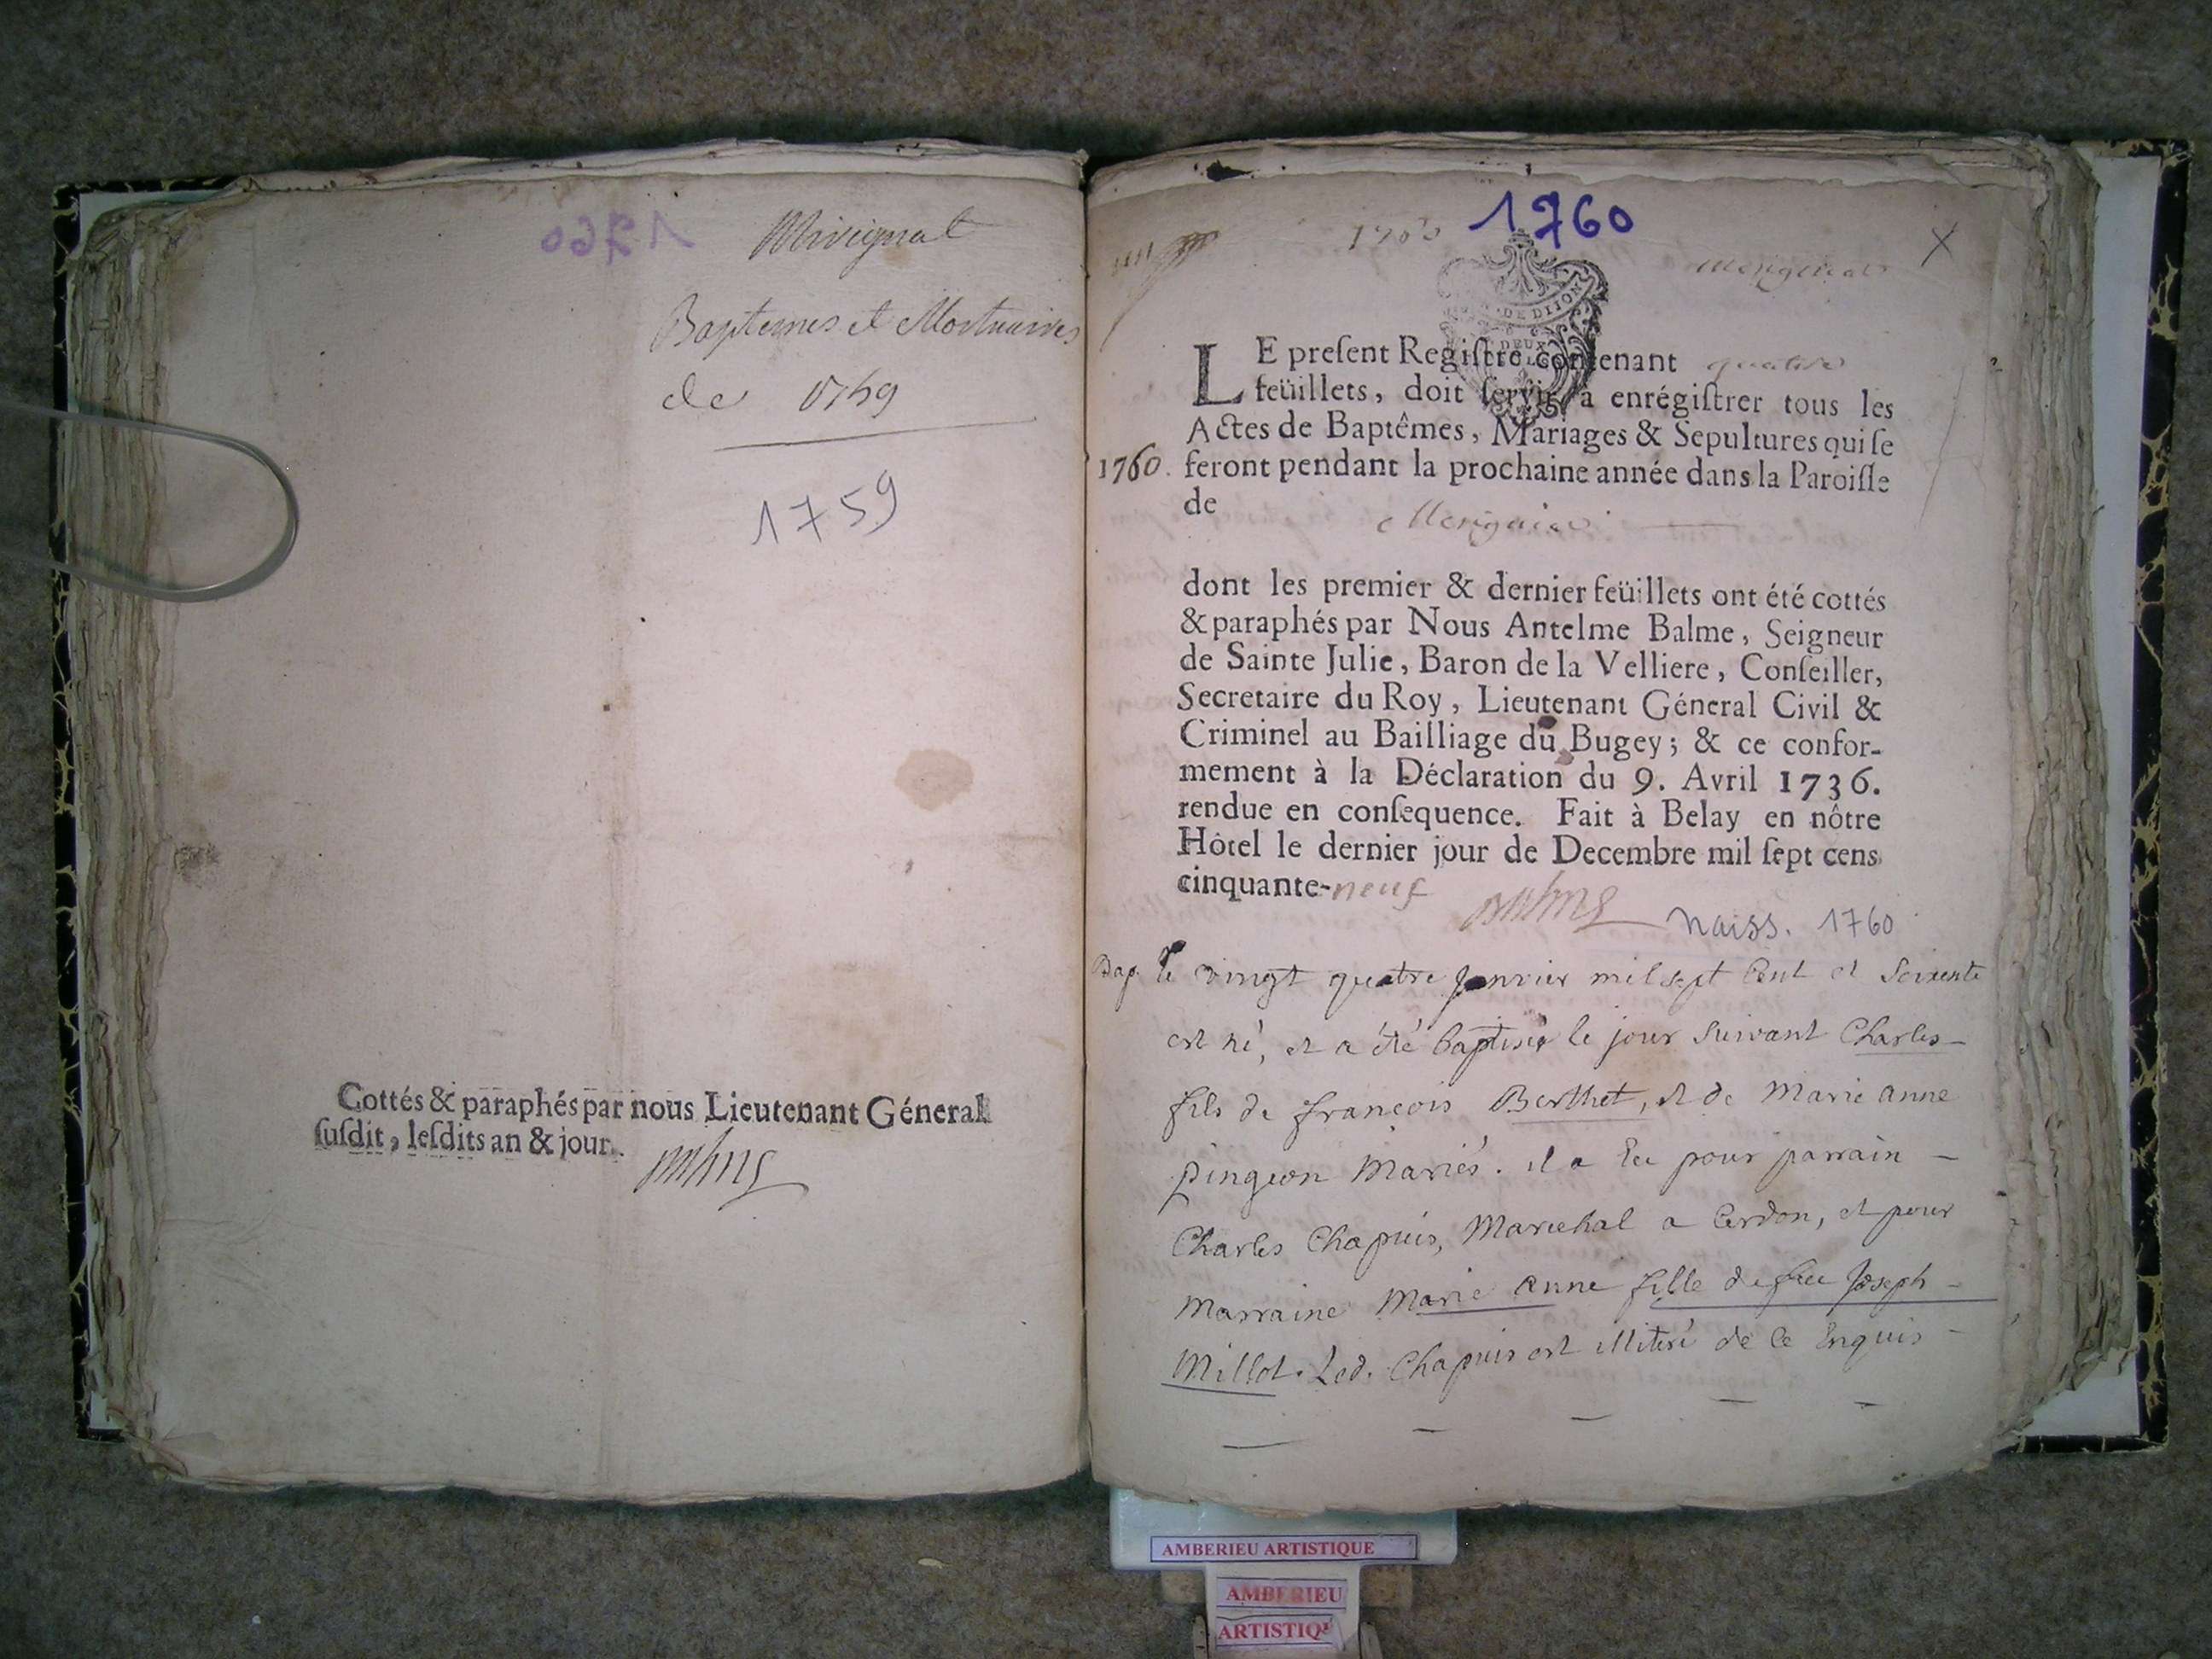 Mérignat
Baptemes et Mortuaires
de 1759
1759
Cottés & paraphés par nous Lieutenant Géneral
ſuſdit, leſdits an & jour.
1760 1760
X
Merignat
DE DIJON
DEUX
LE preſent Regiſtre contenant quatre
feüillets, doit ſervir a enrégiſtrer tous les
Actes de Baptêmes, Mariages & Sepultures qui ſe
1760. feront pendant la prochaine année dans la Paroiſſe
de
Merignat
dont les premier & dernier feüillets ont été cottés
& paraphés par Nous Antelme Balme, Seigneur
de Sainte Julie, Baron de la Velliere, Conſeiller,
Secretaire du Roy, Lieutenant Géneral Civil &
Criminel au Bailliage du Bugey; & ce confor-
mement à la Déclaration du 9. Avril 1736.
rendue en conſequence. Fait à Belay en nôtre
Hôtel le dernier jour de Decembre mil ſept cens
cinquante-neuf Balme
naiss. 1760
Bap. le vingt quatre janvier mil sept Cent et Soixente
est né, et a été baptisé le jour Suivant Charles
fils de françois Berthet, et de Marie anne
pingeon Mariés. il a Eu pour parrain
Charles Chapuis, Marechal a Cerdon, et pour
Marraine Marie anne fille de feu Joseph
Millot. Led. Chapuis est illiteré de ce Enquis
AMBERIEU ARTISTIQUE
AMBERIEU
ARTISTIQ